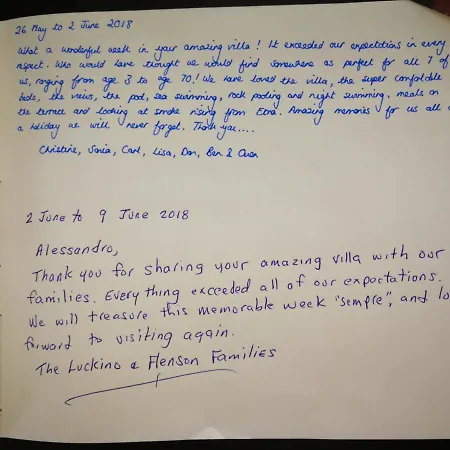 26 May to 2 June 2018
What a wonderful week in your amazing villa! It exceeded our expectations in every
respect. Who would have thought we would find somewhere as perfect for all 7 of
us, ranging from age 3 to age 70.! We have loved the villa, the super comfortable
beds, the views, the pool, sea swimming, rock pooling and night swimming, meals on
the terrace and looking at smoke rising from Etna. Amazing memories for us all
a holiday we will never forget. Thank you....
Christine, Sonia, Carl, Lisa, Dan, Ben &
2 June to 9 June 2018
Alessandro,
Thank you for sharing your amazing villa with our
families. Everything exceeded all of our expectations.
We will treasure this memorable week "sempre", and lo
forward to visiting again.
The Luckino & Henson Families